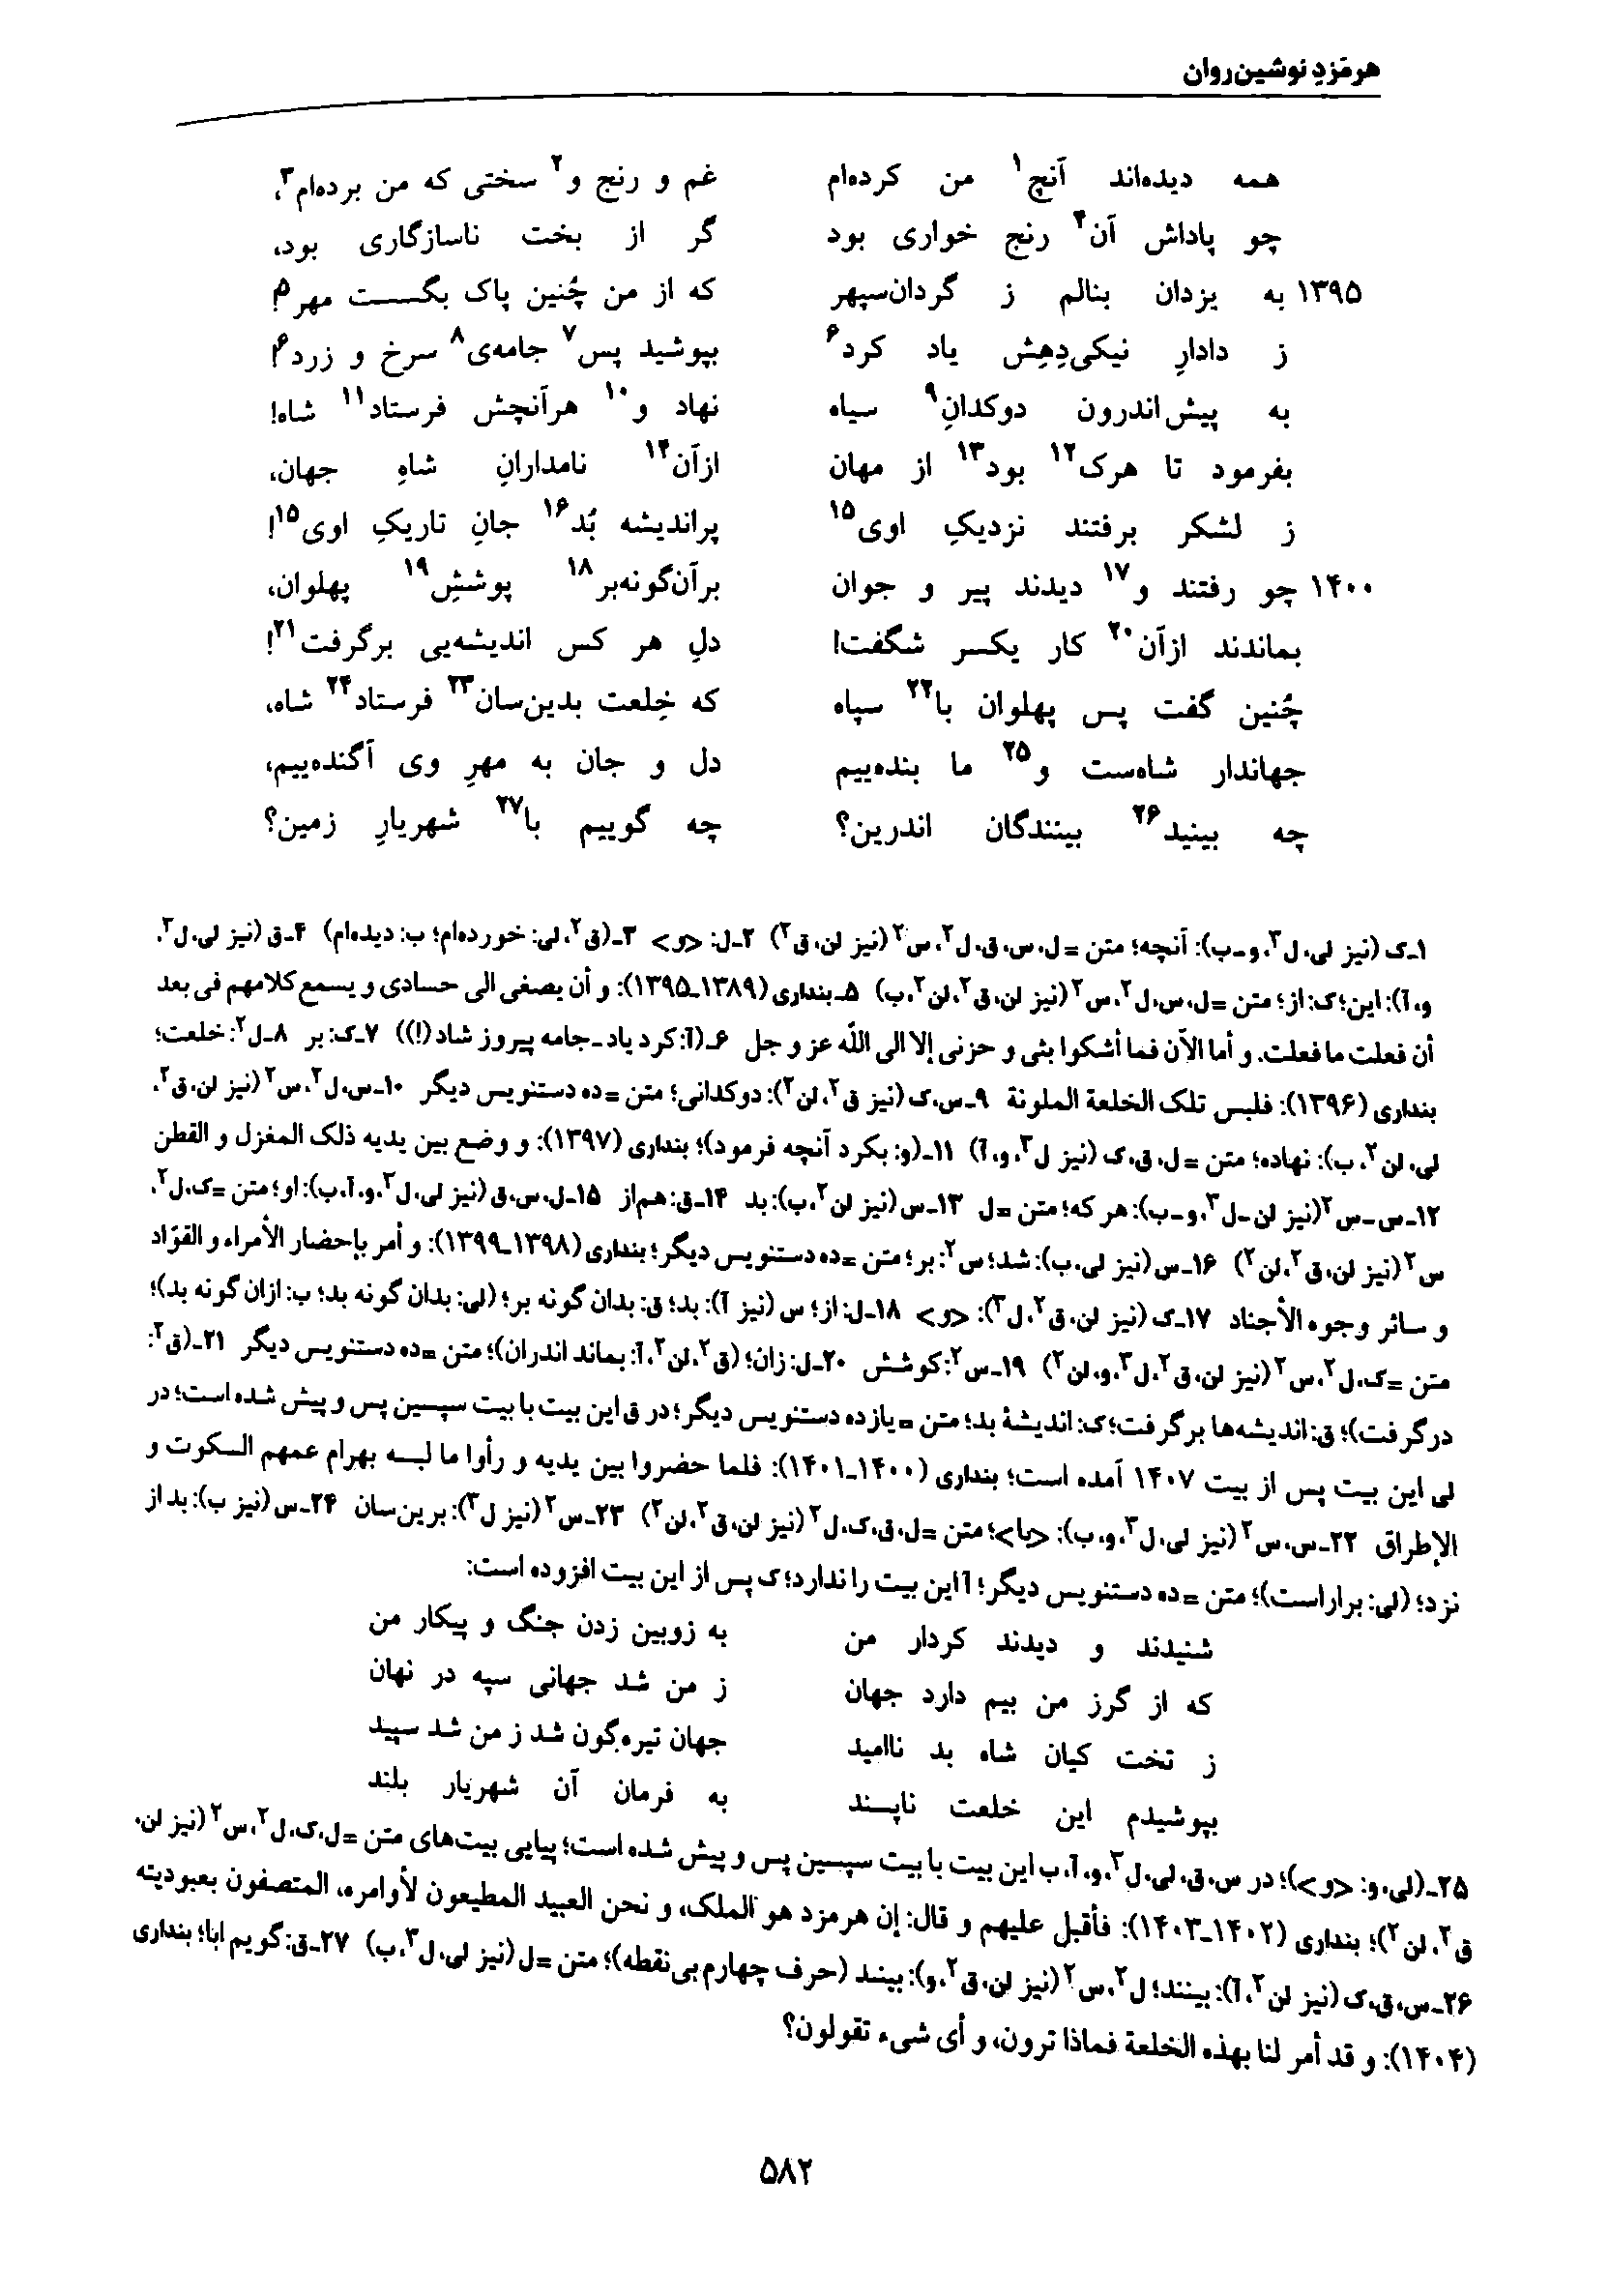 هرمَزدِ نوشین‌روان
همه دیده‌اند آنچ۱ من کرده‌ام غم و رنج و۲ سختی که من برده‌ام۳،
چو پاداش آن۴ رنج خواری بود گر از بخت ناسازگاری بود،
۱۳۹۵ به یزدان بنالم ز گردان‌سپهر که از من چُنین پاک بگسست مهر۵!
ز دادارِ نیکی‌دِهِش یاد کرد۶ بپوشید پس۷ جامه‌ی۸ سرخ و زرد۶!
به پیش‌اندرون دوکدانِ۹ سیاه نهاد و۱۰ هرآنچش فرستاد۱۱ شاه!
بفرمود تا هرک۱۲ بود۱۳ از مهان ازآن۱۴ نامدارانِ شاهِ جهان،
ز لشکر برفتند نزدیکِ اوی۱۵ پراندیشه بُد۱۶ جانِ تاریکِ اوی۱۵!
۱۴۰۰ چو رفتند و۱۷ دیدند پیر و جوان برآن‌گونه‌بر۱۸ پوششِ۱۹ پهلوان،
بماندند ازآن۲۰ کار یکسر شگفت! دلِ هر کس اندیشه‌یی برگرفت۲۱!
چُنین گفت پس پهلوان با۲۲ سپاه که خِلعت بدین‌سان۲۳ فرستاد۲۴ شاه،
جهاندار شاه‌ست و۲۵ ما بنده‌ییم دل و جان به مهرِ وی آگنده‌ییم،
چه بینید۲۶ بینندگان اندرین؟ چه گوییم با۲۷ شهریارِ زمین؟
۱ـ ک (نیز لی، ل۳، و ـ ب): آنچه؛ متن = ل، س، ق، ل۲، س۲ (نیز لن، ق۲) ۲ـ ل: <و> ۳ـ (ق۲، لی: خورده‌ام؛ ب: دیده‌ام) ۴ـ ق (نیز لی، ل۳،
و، آ): این؛ ک: از؛ متن = ل، س، ل۲، س۲ (نیز لن، ق۲، لن۲، ب) ۵ـ بنداری (۱۳۸۹ـ۱۳۹۵): و أن یصغی الی حسادی و یسمع کلامهم فی بعد
أن فعلت ما فعلت. و أما الآن فما أشکوا بثی و حزنی إلا الی الله عز و جل ۶ـ (آ: کرد یاد ـ جامه پیروز شاد (!)) ۷ـ ک: بر ۸ـ ل۲: خلعت؛
بنداری (۱۳۹۶): فلبس تلک الخلعة الملونة ۹ـ س، ک (نیز ق۲، لن۲): دوکدانی؛ متن = ده دستنویس دیگر ۱۰ـ س، ل۲، س۲ (نیز لن، ق۲،
لی، لن۲، ب): نهاده؛ متن = ل، ق، ک (نیز ل۳، و، آ) ۱۱ـ (و: بکرد آنچه فرمود)؛ بنداری (۱۳۹۷): و وضع بین یدیه ذلک المغزل و القطن
۱۲ـ س ـ س۲ (نیز لن ـ ل۳، و ـ ب): هر که؛ متن = ل ۱۳ـ س (نیز لن۲، ب): بد ۱۴ـ ق: هم‌از ۱۵ـ ل، س، ق (نیز لی، ل۳، و، آ، ب): او؛ متن = ک، ل۲،
س۲ (نیز لن، ق۲، لن۲) ۱۶ـ س (نیز لی، ب): شد؛ س۲: بر؛ متن = ده دستنویس دیگر؛ بنداری (۱۳۹۸ـ۱۳۹۹): و أمر بإحضار الأمراء و القوّاد
و سائر وجوه الأجناد ۱۷ـ ک (نیز لن، ق۲، ل۳): <و> ۱۸ـ ل: از؛ س (نیز آ): بد؛ ق: بدان گونه بر؛ (لی: بدان گونه بد؛ ب: ازان گونه بد)؛
متن = ک، ل۲، س۲ (نیز لن، ق۲، ل۳، و، لن۲) ۱۹ـ س۲: کوشش ۲۰ـ ل: زان؛ (ق۲، لن۲، آ: بماند اندران)؛ متن = ده دستنویس دیگر ۲۱ـ (ق۲:
درگرفت)؛ ق: اندیشه‌ها برگرفت؛ ک: اندیشۀ بد؛ متن = یازده دستنویس دیگر؛ در ق این بیت با بیت سپسین پس و پیش شده است؛ در
لی این بیت پس از بیت ۱۴۰۷ آمده است؛ بنداری (۱۴۰۰ـ۱۴۰۱): فلما حضروا بین یدیه و رأوا ما لبسه بهرام عمهم السکوت و
الإطراق ۲۲ـ س، س۲ (نیز لی، ل۳، و، ب): <با>؛ متن = ل، ق، ک، ل۲ (نیز لن، ق۲، لن۲) ۲۳ـ س۲ (نیز ل۳): برین‌سان ۲۴ـ س (نیز ب): بد از
نزد؛ (لی: برار است)؛ متن = ده دستنویس دیگر؛ آ این بیت را ندارد؛ ک پس از این بیت افزوده است:
شنیدند و دیدند کردار من به زوبین زدن جنگ و پیکار من
که از گرز من بیم دارد جهان ز من شد جهانی سپه در نهان
ز تخت کیان شاه بد ناامید جهان تیره‌گون شد ز من شد سپید
بپوشیدم این خلعت ناپسند به فرمان آن شهریار بلند
۲۵ـ (لی، و: <و>)؛ در س، ق، لی، ل۳، و، آ، ب این بیت با بیت سپسین پس و پیش شده است؛ پیاپی بیت‌های متن = ل، ک، ل۲، س۲ (نیز لن،
ق۲، لن۲)؛ بنداری (۱۴۰۲ـ۱۴۰۳): فأقبل علیهم و قال: إن هرمزد هو الملک، و نحن العبید المطیعون لأوامره، المتصفون بعبودیته
۲۶ـ س، ق، ک (نیز لن۲، آ): بینند؛ ل۲، س۲ (نیز لن، ق۲، و): بینند (حرف چهارم بی‌نقطه)؛ متن = ل (نیز لی، ل۳، ب) ۲۷ـ ق: گویم ابا؛ بنداری
(۱۴۰۴): و قد أمر لنا بهذه الخلعة فماذا ترون، و أی شیء تقولون؟
۵۸۲